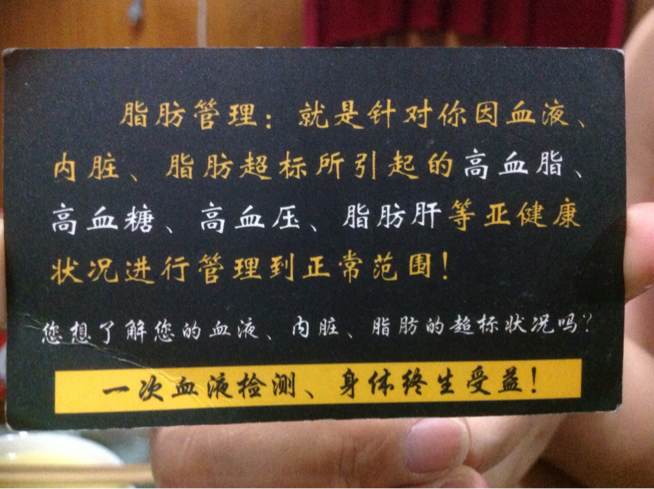 脂肪管理：就是针对你因血液、
内脏、脂肪超标所引起的高血脂、
高血糖、高血压、脂肪肝等亚健康
状况进行管理到正常范围！
您想了解您的血液、内脏、脂肪的超标状况吗？
一次血液检测、身体终生受益！